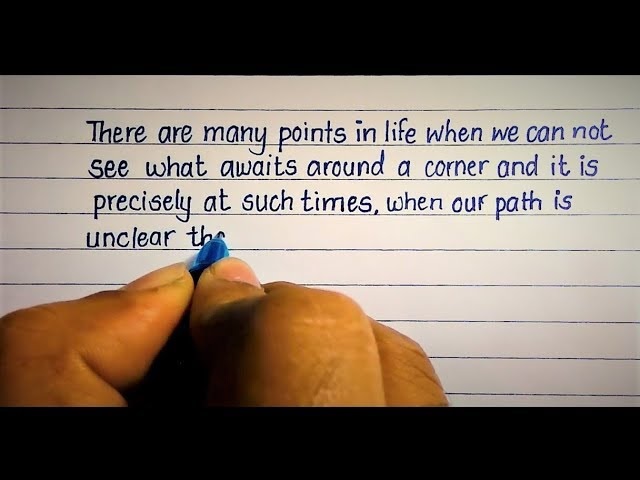 There are many points in life when we can not
see what awaits around a corner and it is
precisely at such times, when our path is
unclear tha